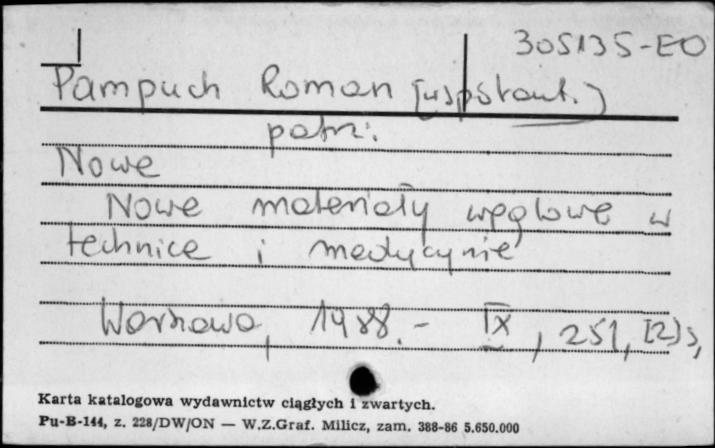 305135-EO
Pampuch Roman [współaut.)
patrz:
Nowe
Nowe materiały węglowe w
technice i medycynie
Warszawa, 1988. - IX, 251, [2] s,
Karta katalogowa wydawnictw ciągłych i zwartych.
Pu-B-144, z. 228/DW/ON — W.Z.Graf. Milicz, zam. 388-86 5.650.000